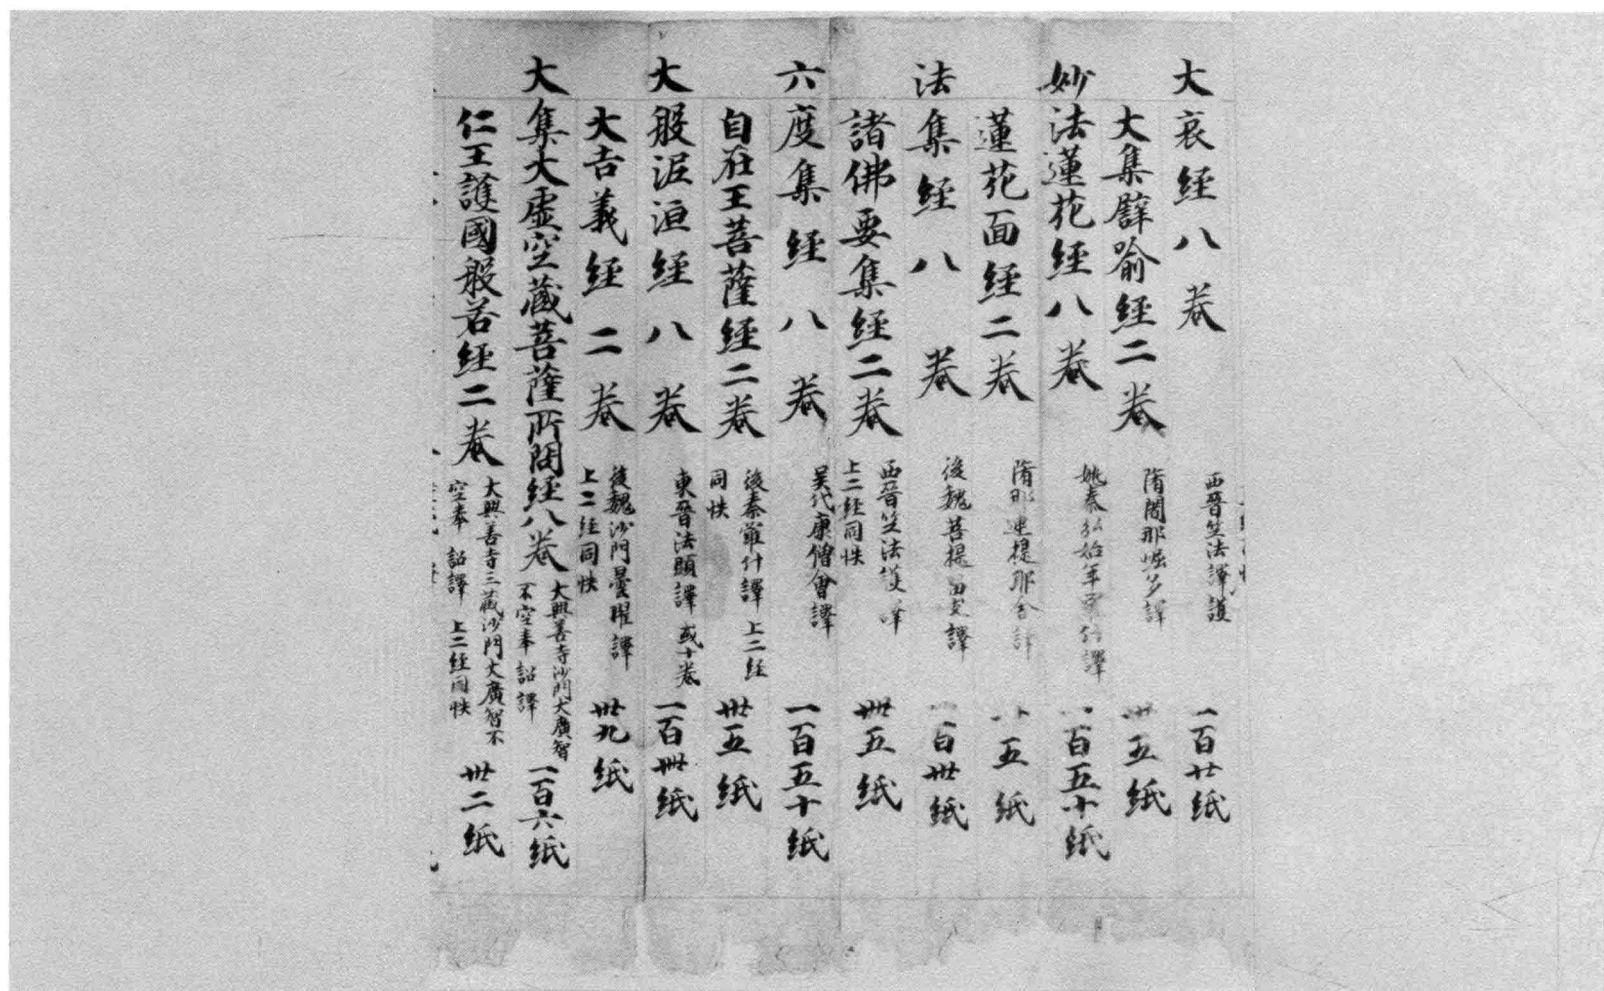 大哀経八巻 西晉竺法譯護 一百廿紙
大集譬喻経二巻 隋闍那崛多譯 卅五紙
妙法蓮花経八巻 姚秦弘始年羅什譯 一百五十紙
蓮花面経二巻 隋那連提耶舍譯 五紙
法集経八巻 後魏菩提留支譯 一百卅紙
諸佛要集経二巻 西晉竺法護譯 上二経同帙 卅五紙
六度集経八巻 吴代康僧會譯 一百五十紙
自在王菩薩経二巻 後秦羅什譯 上二経同帙 卅五紙
大般泥洹経八巻 東晉法顯譯 或十巻 一百卌紙
大吉義経二巻 後魏沙門曇曜譯 上二経同帙 卅九紙
大集大虛空藏菩薩所問経八巻 大興善寺沙門大廣智不空奉 詔譯 一百六紙
仁王護國般若経二巻 大興善寺三藏沙門大廣智不空奉 詔譯 上二経同帙 卅二紙